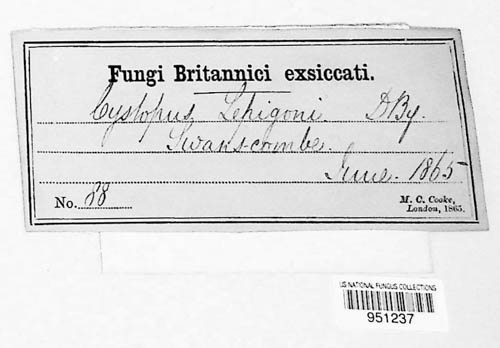 Fungi Britannici exsiccati.
Cystopus Lepigoni. DBy.
Swanscombe.
June. 1865
No. 88
M. C. Cooke,
London, 1865.
US NATIONAL FUNGUS COLLECTIONS
951237